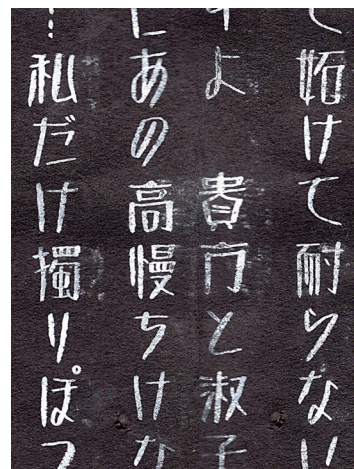 妬けて耐らない
よ　貴方と淑子
あの高慢ちけな
…私だけ獨りぽつ